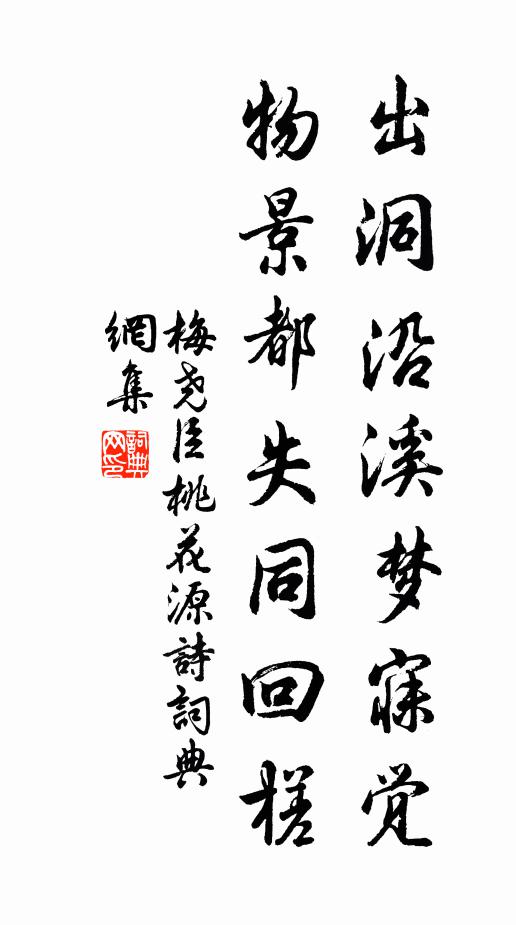 出洞沿溪梦寐觉
物景都失同回槎
梅尧臣桃花源詩詞典
網集
詞典
网印